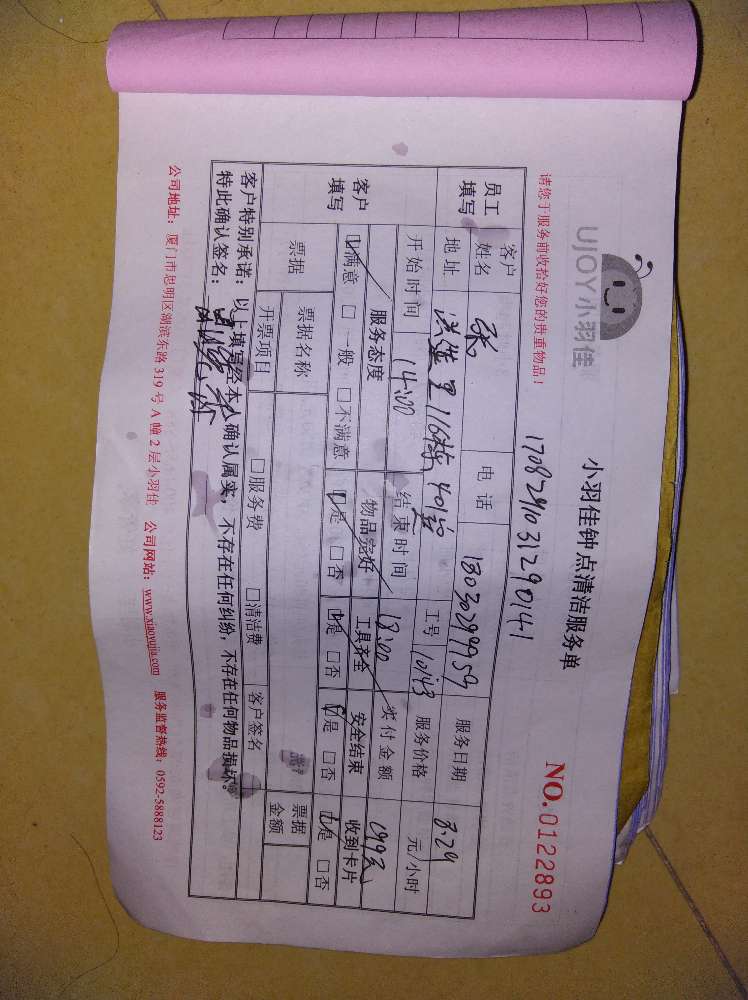 UJOY小羽佳
小羽佳钟点清洁服务单
NO.0122893
请您于服务前收拾好您的贵重物品!
1708291031290141
员工填写 客户姓名 张 电话 18030299959 服务日期 8.29
地址 洪莲里116栋401室 工号 10143 服务价格 元/小时
开始时间 14:00 结束时间 18:00 实付金额
客户填写 服务态度 物品完好 工具齐全 安全结束 收到卡片
☑满意 □一般 □不满意 ☑是 □否 ☑是 □否 ☑是 □否 ☑是 □否
票据 票据名称 客户签名 票据金额
开票项目 □服务费 □清洁费
客户特别承诺:以上填写经本人确认属实,不存在任何纠纷,不存在任何物品损坏。
特此确认签名:
公司地址:厦门市思明区湖滨东路319号A幢2层小羽佳 公司网站:www.xiaoyujia.com 服务监督热线:0592-5888123